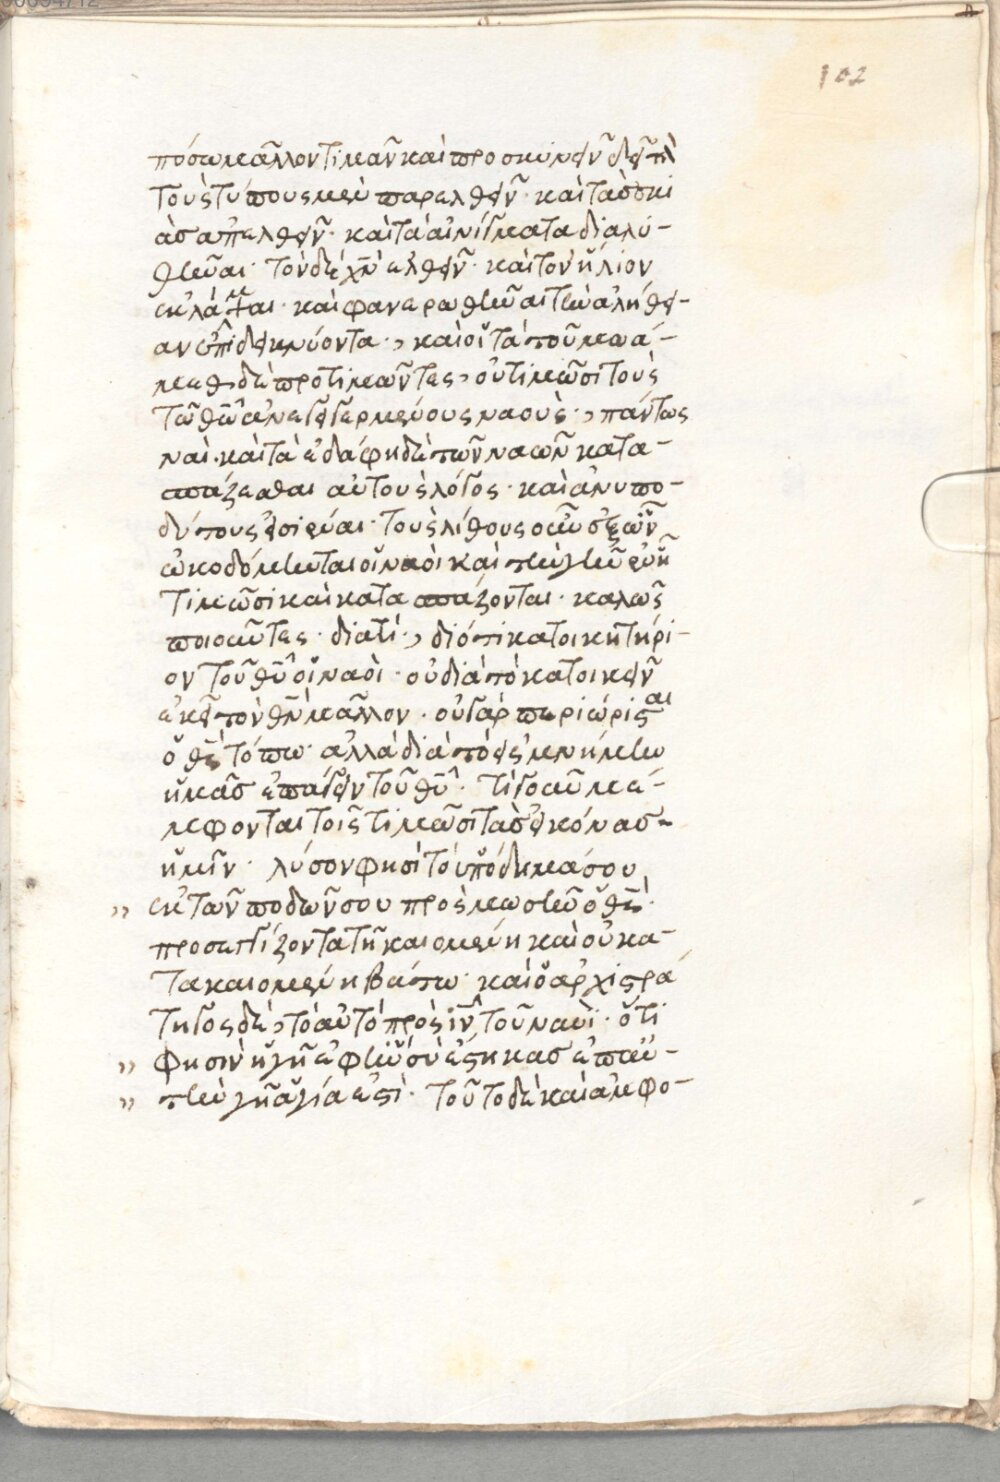 102
πόσω μᾶλλον τιμᾶν καὶ προσκυνεῖν δεῖ τὸ
τοὺς τύπους μὲν παρελθεῖν· καὶ τὰς σκι
ὰς ἀπελθεῖν· καὶ τὰ αἰνίγματα διαλυ-
θῆναι· τὸν δὲ χν̄ ἐλθεῖν· καὶ τὸν ἥλιον
ἐκλάμψαι· καὶ φανερωθῆναι τὴν ἀλήθει-
αν ἐπιδεικνύοντα·, καὶ οἱ τὰ τοῦ μωά-
μεθ δὲ προτιμῶντες, οὐ τιμῶσι τοὺς
τῶ θῶ ἀνεγειγερμένους ναοὺς·, πάντως
ναί· καὶ τὰ ἐδάφη δὲ τῶν ναῶν κατα-
σπάζεσθαι αὐτοὺς λόγος· καὶ ἀνυπο-
δύτους εἰσιέναι· τοὺς λίθους οὖν ἐξ ὧν
ὠκοδόμηνται οἱ ναοὶ καὶ τὴν γῆν
τιμῶσι καὶ κατασπάζονται· καλῶς
ποιοῦντες· διατί·, διότι κατοικητήρι-
ον τοῦ θῦ οἱ ναοὶ· οὐ διὰ τὸ κατοικεῖν
ἐκεῖ τὸν θν̄ μᾶλλον· οὐ γὰρ περιώρισται
ὁ θς̄ τόπω· ἀλλὰ διὰ τὸ εἰς μνήμην
ἡμᾶς ἐπάγειν τοῦ θῦ· τί γοῦν μέ-
μφονται τοῖς τιμῶσι τὰς εἰκόνας-
ἡμῖν· λύσον φησὶ τὸ ὑπόδημά σου
" ἐκ τῶν ποδῶν σου πρὸς μωσῆν ὁ θς̄·
προσεγγίζοντα τῆ καιομένη καὶ οὐ κα-
τακαιομένη βάτω· καὶ ὁ ἀρχιστρά
τηγος δὲ, τὸ αὐτὸ πρὸς ἰν̄ τοῦ ναυί· ὅτι
" φησὶν ἡ γῆ ἐφ' ἣν σὺ ἕστηκας ἐπ' αὐ-
" τὴν γῆ ἁγία ἐστὶ· τοῦτο δὲ καὶ ἀμφο-